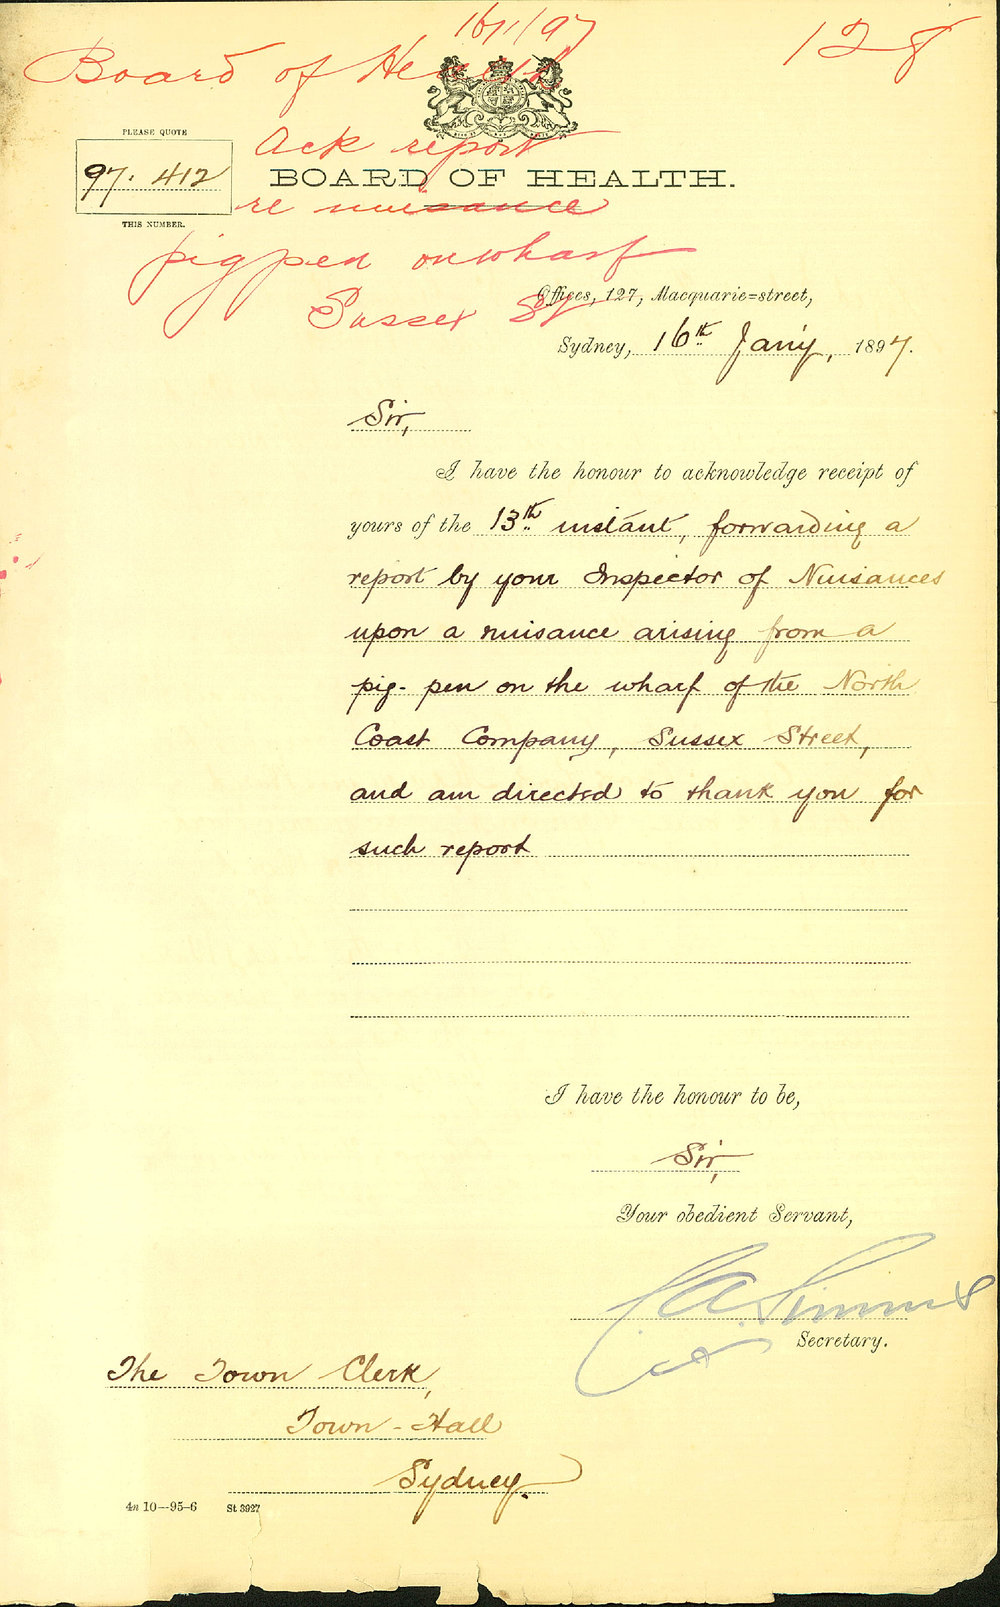 16/1/97
128
Board of Health
Ack report
re nuisance
pig pen on wharf
Sussex St
PLEASE QUOTE
97. 412
THIS NUMBER.
BOARD OF HEALTH.
Offices, 127, Macquarie=street,
Sydney, 16th Jany, 1897.
Sir,
I have the honour to acknowledge receipt of
yours of the 13th instant, forwarding a
report by your Inspector of Nuisances
upon a nuisance arising from a
pig-pen on the wharf of the North
Coast Company, Sussex Street,
and am directed to thank you for
such report
I have the honour to be,
Sir,
Your obedient Servant,
Secretary.
The Town Clerk,
Town-Hall
Sydney.
4n 10—95-6 St 3927